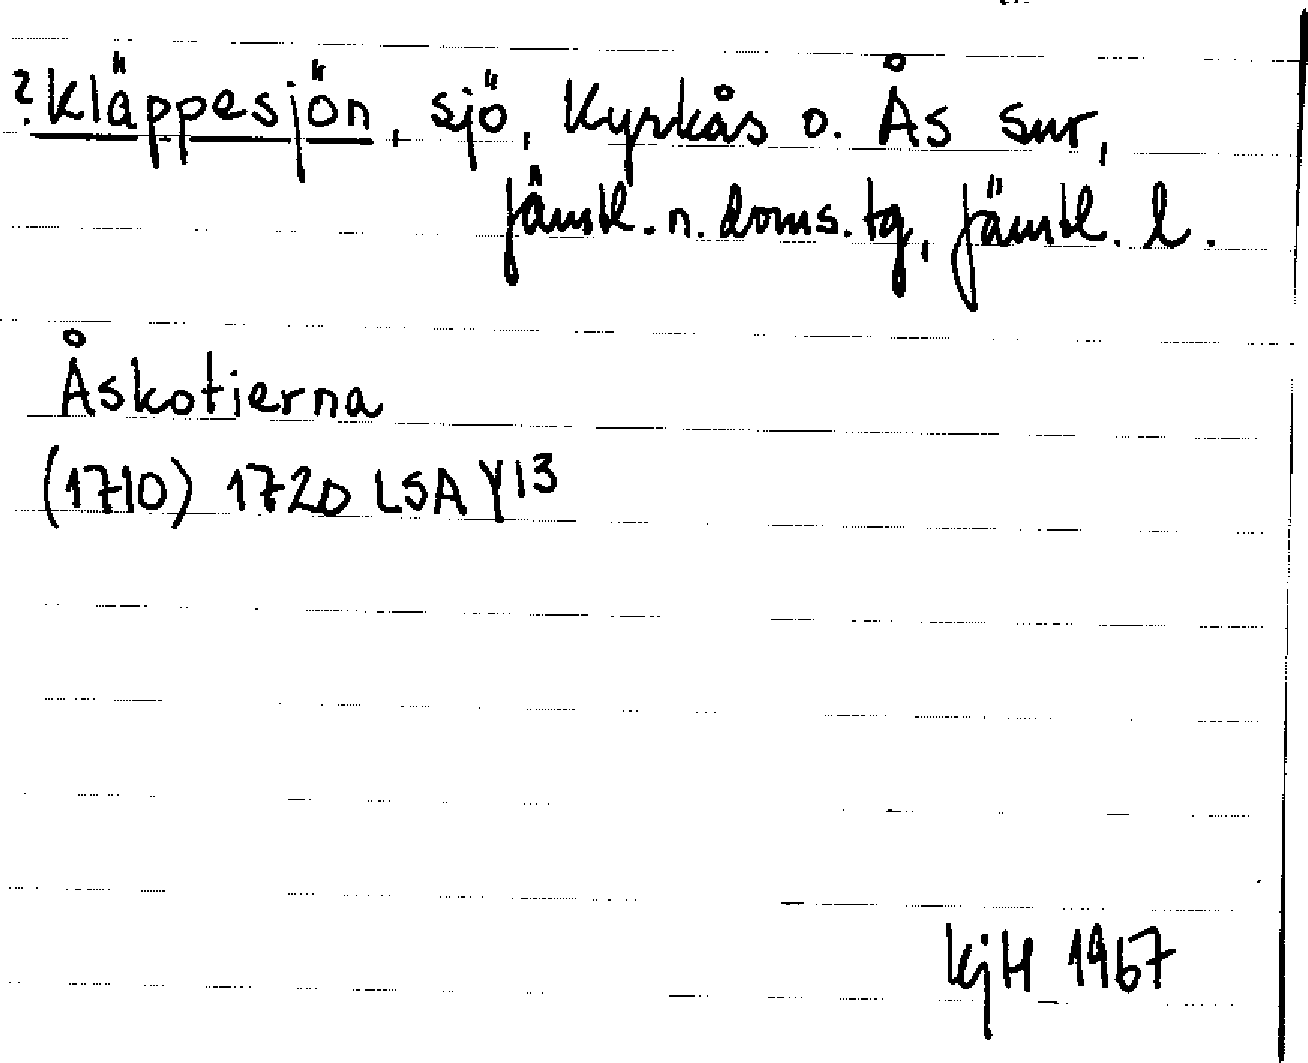 ?Kläppesjön, sjö, Kyrkås o. Ås snr,
Jämtl. n. doms. tg, Jämtl. l.
Åskotierna
(1710) 1720 LSA Y13
KjH 1967